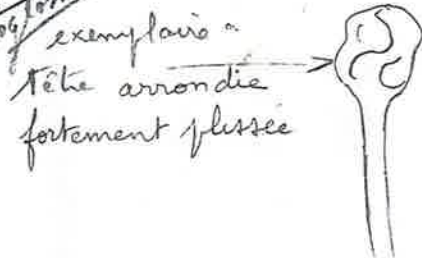 exemplaire
Tête arrondie
fortement plissée